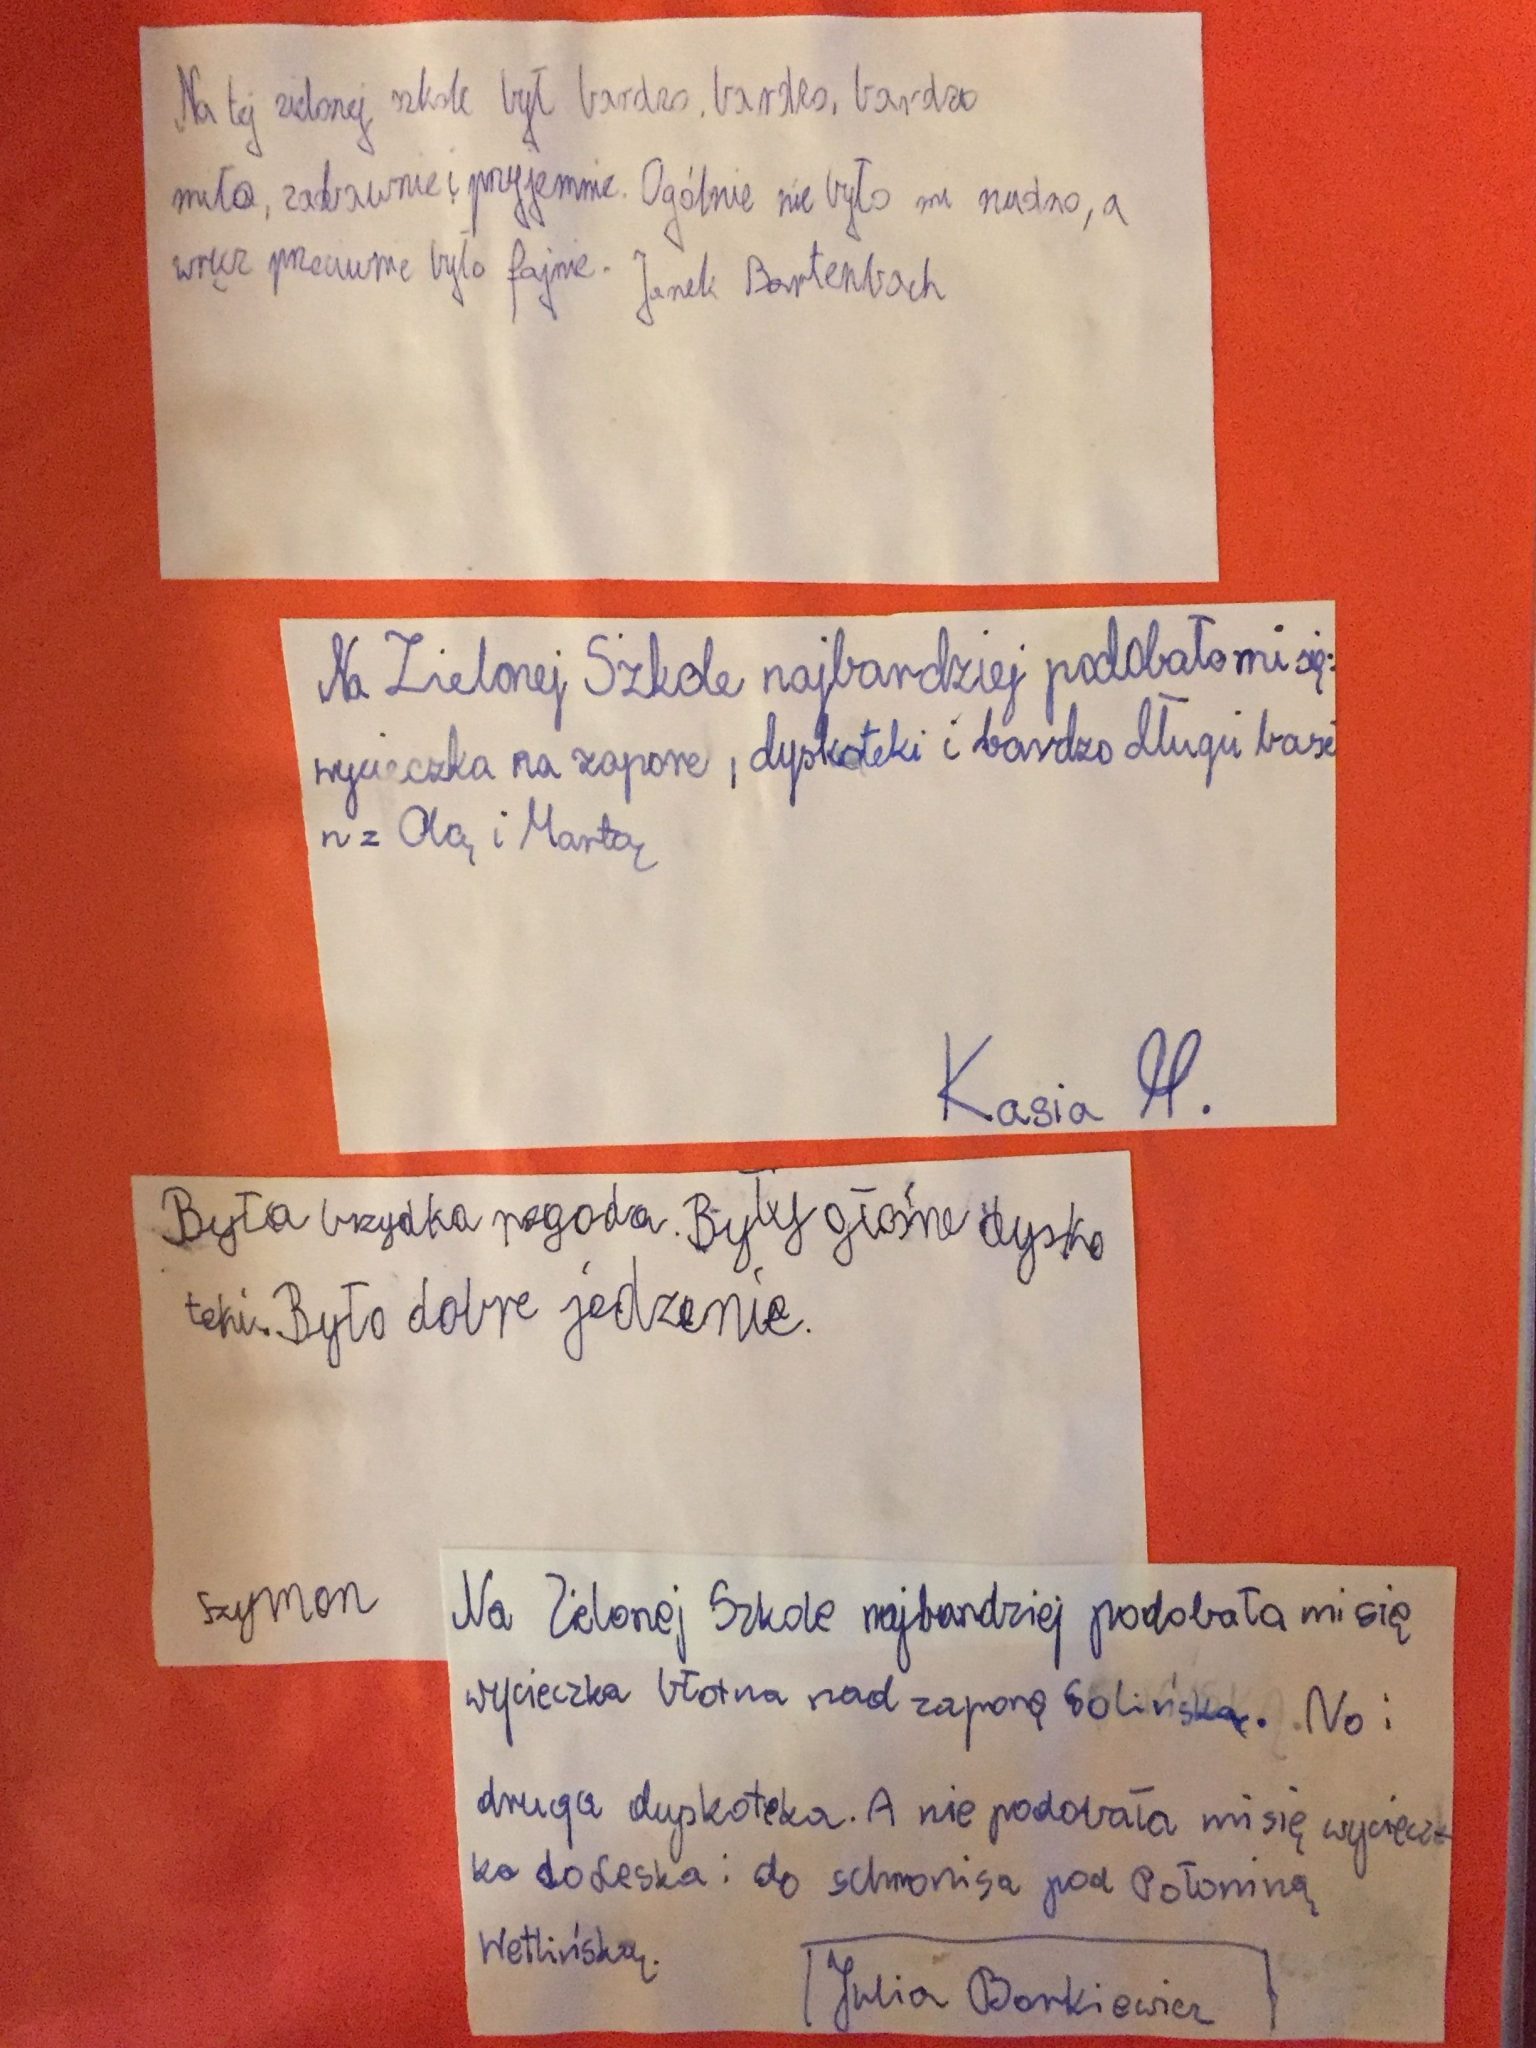 Na tej zielonej szkole był bardzo, bardzo, bardzo
miło, zabawnie i przyjemnie. Ogólnie nie było mi nudno, a
wręcz przeciwnie było fajnie. Janek Bartenbach
Na Zielonej Szkole najbardziej podobało mi się:
wycieczka na zapore, dyskoteki i bardzo długi base
n z Olą i Martą
Kasia M.
Była brzydka pogoda. Były głośne dysko
teki. Było dobre jedzenie.
szymon
Na Zielonej Szkole najbardziej podobała mi się
wycieczka błotna nad zaporę Solińską. No i
druga dyskoteka. A nie podobała mi się wyciecz
ka do Leska i do schronisa pod Połoniną
Wetlińską.
Julia Borkiewicz